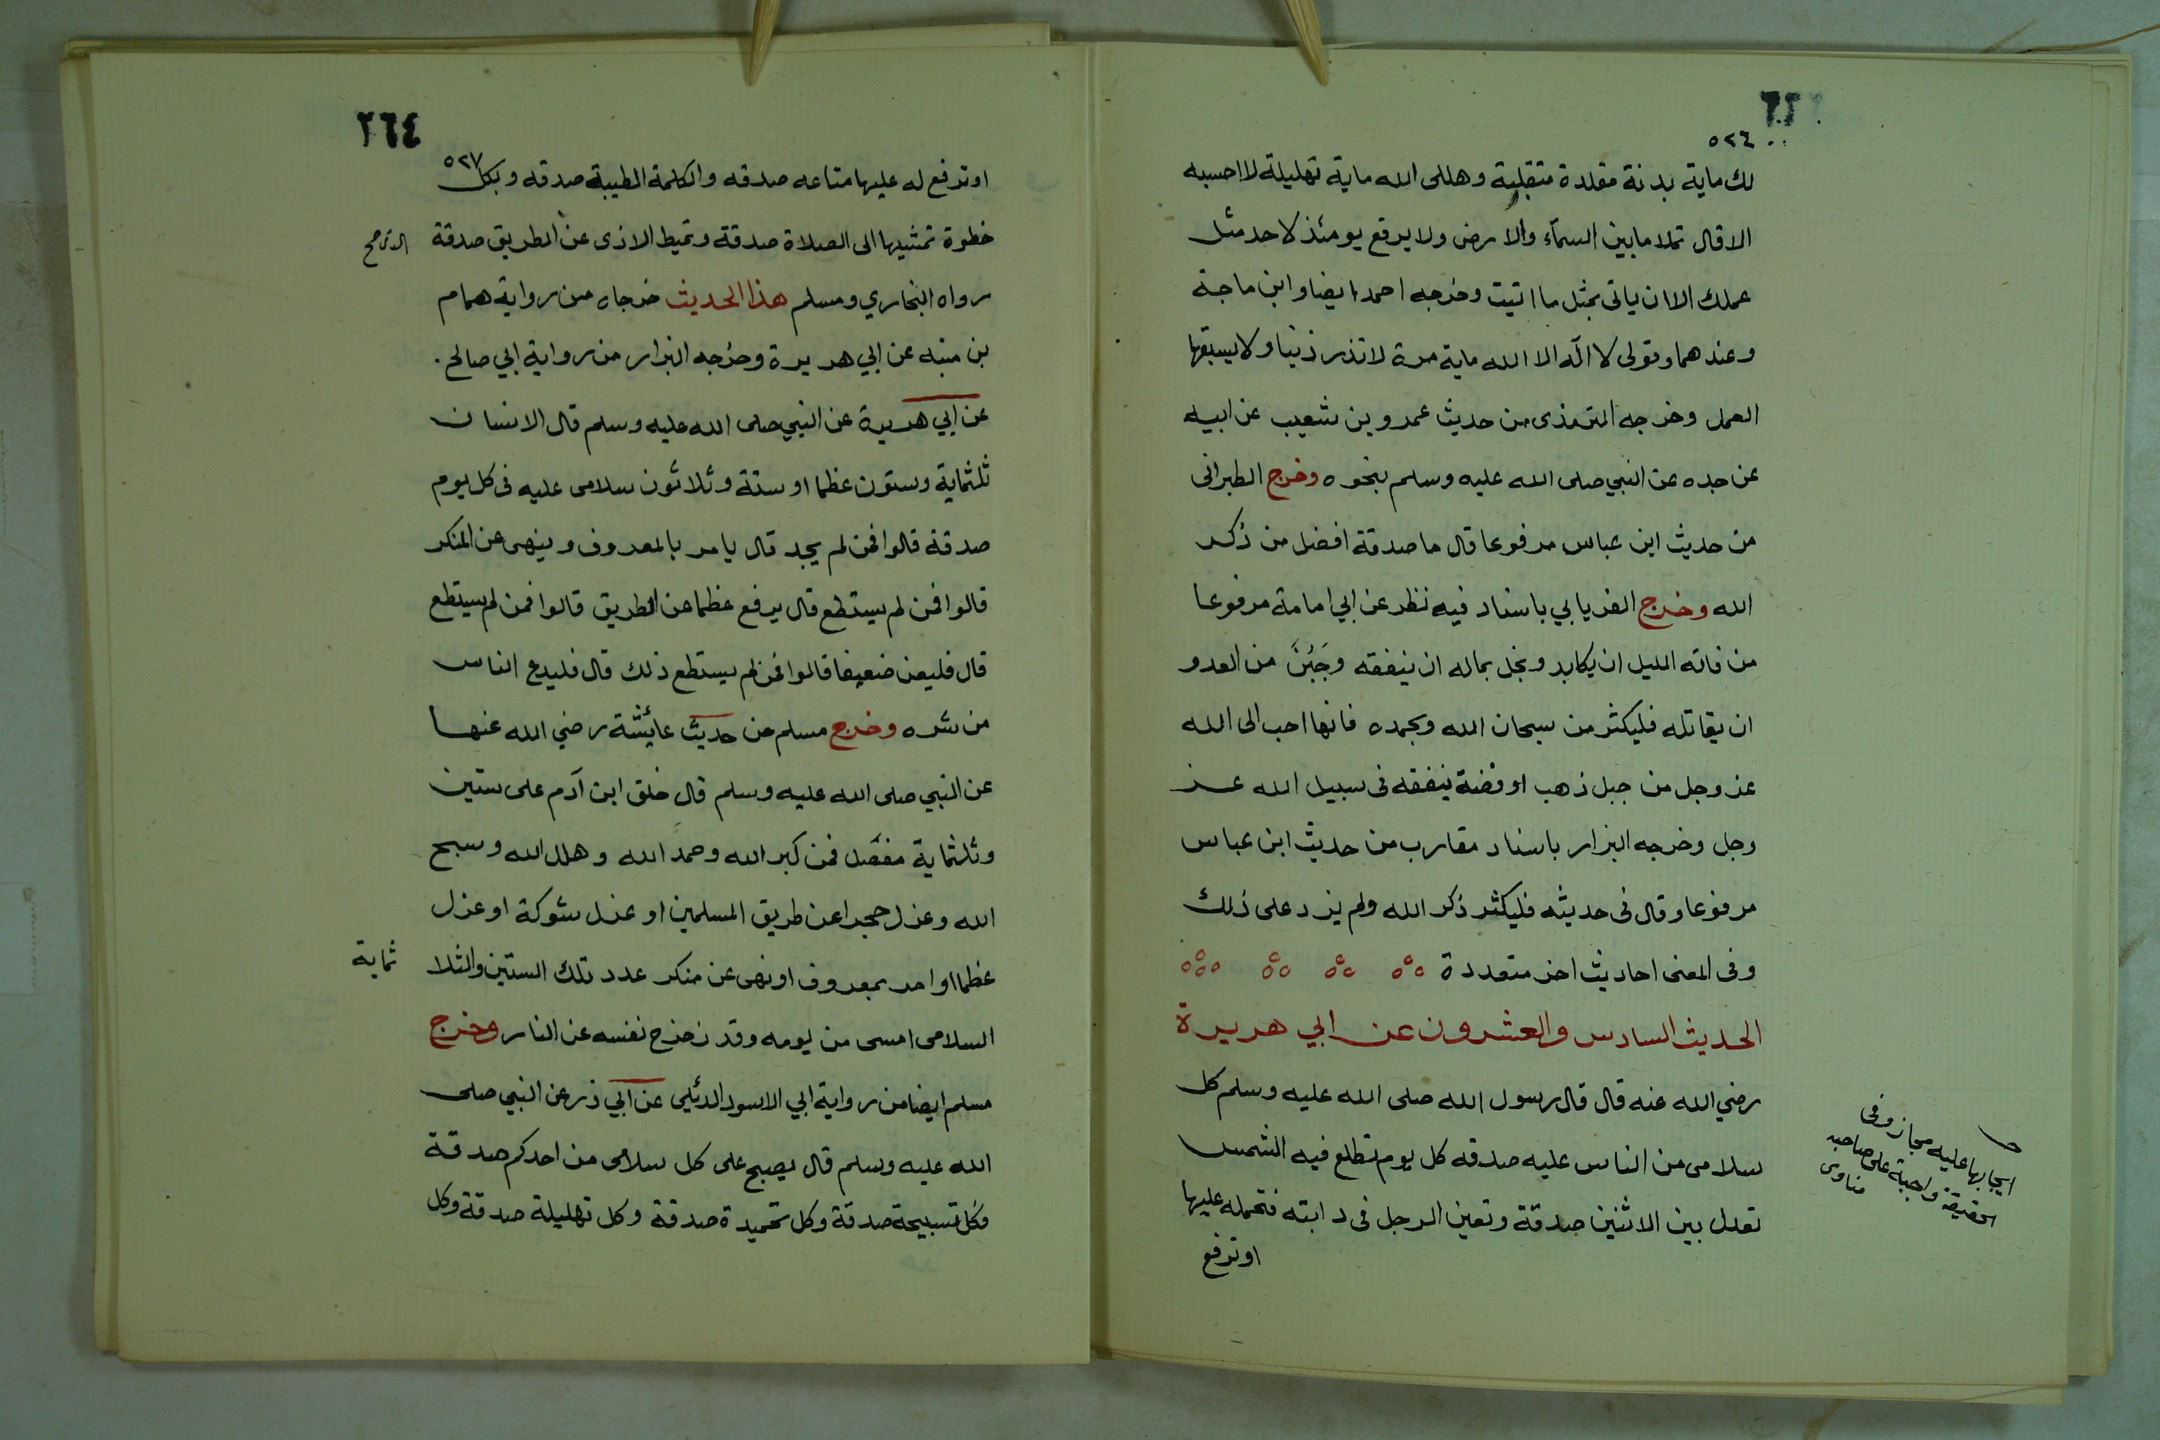 ٥٢٤
لك ماية بدنة مقلدة متقلبة وهللى الله ماية تهليلة لا احسبه
الا قال تملا ما بين السمآء والارض ولا يرفع يومئذ لاحد مثل
عملك الا ان ياتى بمثل ما اتيت وخرجه احمد ايضا وابن ماجة
وعندهما وقولى لا اله الا الله ماية مرة لا تذر ذنبا ولا يسبقها
العمل وخرجه الترمذى من حديث عمرو بن شعيب عن ابيه
عن جده عن النبي صلى الله عليه وسلم بنحوه وخرج الطبرانى
من حديث ابن عباس مرفوعا قال ما صدقة افضل من ذكر
الله وخرج الفريابي باسناد فيه نظر عن ابي امامة مرفوعا
من فاته الليل ان يكابد وبخل بماله ان ينفقه وجبن من العدو
ان يقاتله فليكثر من سبحان الله وبحمده فانها احب الى الله
عز وجل من جبل ذهب او فضة ينفقه فى سبيل الله عز
وجل وخرجه البزار باسناد مقارب من حديث ابن عباس
مرفوعا وقال فى حديثه فليكثر ذكر الله ولم يزد على ذلك
وفى المعنى احاديث اخر متعددة
الحديث السادس والعشرون عن ابي هريرة
رضي الله عنه قال قال رسول الله صلى الله عليه وسلم كل
سلامى من الناس عليه صدقه كل يوم تطلع فيه الشمس
تعدل بين الاثنين صدقة وتعين الرجل فى دابته فتحمله عليها
او ترفع
ايجابها عليه مجاز وفى
الحقيقة واجبة على صاحبه
مناوى
٢٦٤
٥٢٧
او ترفع له عليها متاعه صدقه والكلمة الطيبة صدقه وبكل
خطوة تمشيها الى الصلاة صدقة وتميط الاذى عن الطريق صدقة
رواه البخاري ومسلم هذا الحديث خرجاه من رواية همام
بن منبه عن ابي هريرة وخرجه البزار من رواية ابي صالح
عن ابي هريرة عن النبي صلى الله عليه وسلم قال الانسان
ثلثماية وستون عظما او ستة وثلاثون سلامى عليه فى كل يوم
صدقة قالوا فمن لم يجد قال يامر بالمعروف وينهى عن المنكر
قالوا فمن لم يستطع قال يرفع عظما عن الطريق قالوا فمن لم يستطع
قال فليعن ضعيفا قالوا فمن لم يستطع ذلك قال فليدع الناس
من شره وخرج مسلم من حديث عايشة رضي الله عنها
عن النبي صلى الله عليه وسلم قال خلق ابن آدم على ستين
وثلثماية مفصل فمن كبر الله وحمد الله وهلل الله وسبح
الله وعزل حجرا عن طريق المسلمين او عزل شوكة او عزل
عظما او امر بمعروف او نهى عن منكر عدد تلك الستين والثلا
ثماية
السلامى امسى من يومه وقد زحزح نفسه عن النار وخرج
مسلم ايضا من رواية ابي الاسود الدئلي عن ابي ذر عن النبي صلى
الله عليه وسلم قال يصبح على كل سلامى من احدكم صدقة
فكل تسبيحة صدقة وكل تحميدة صدقة وكل تهليلة صدقة وكل